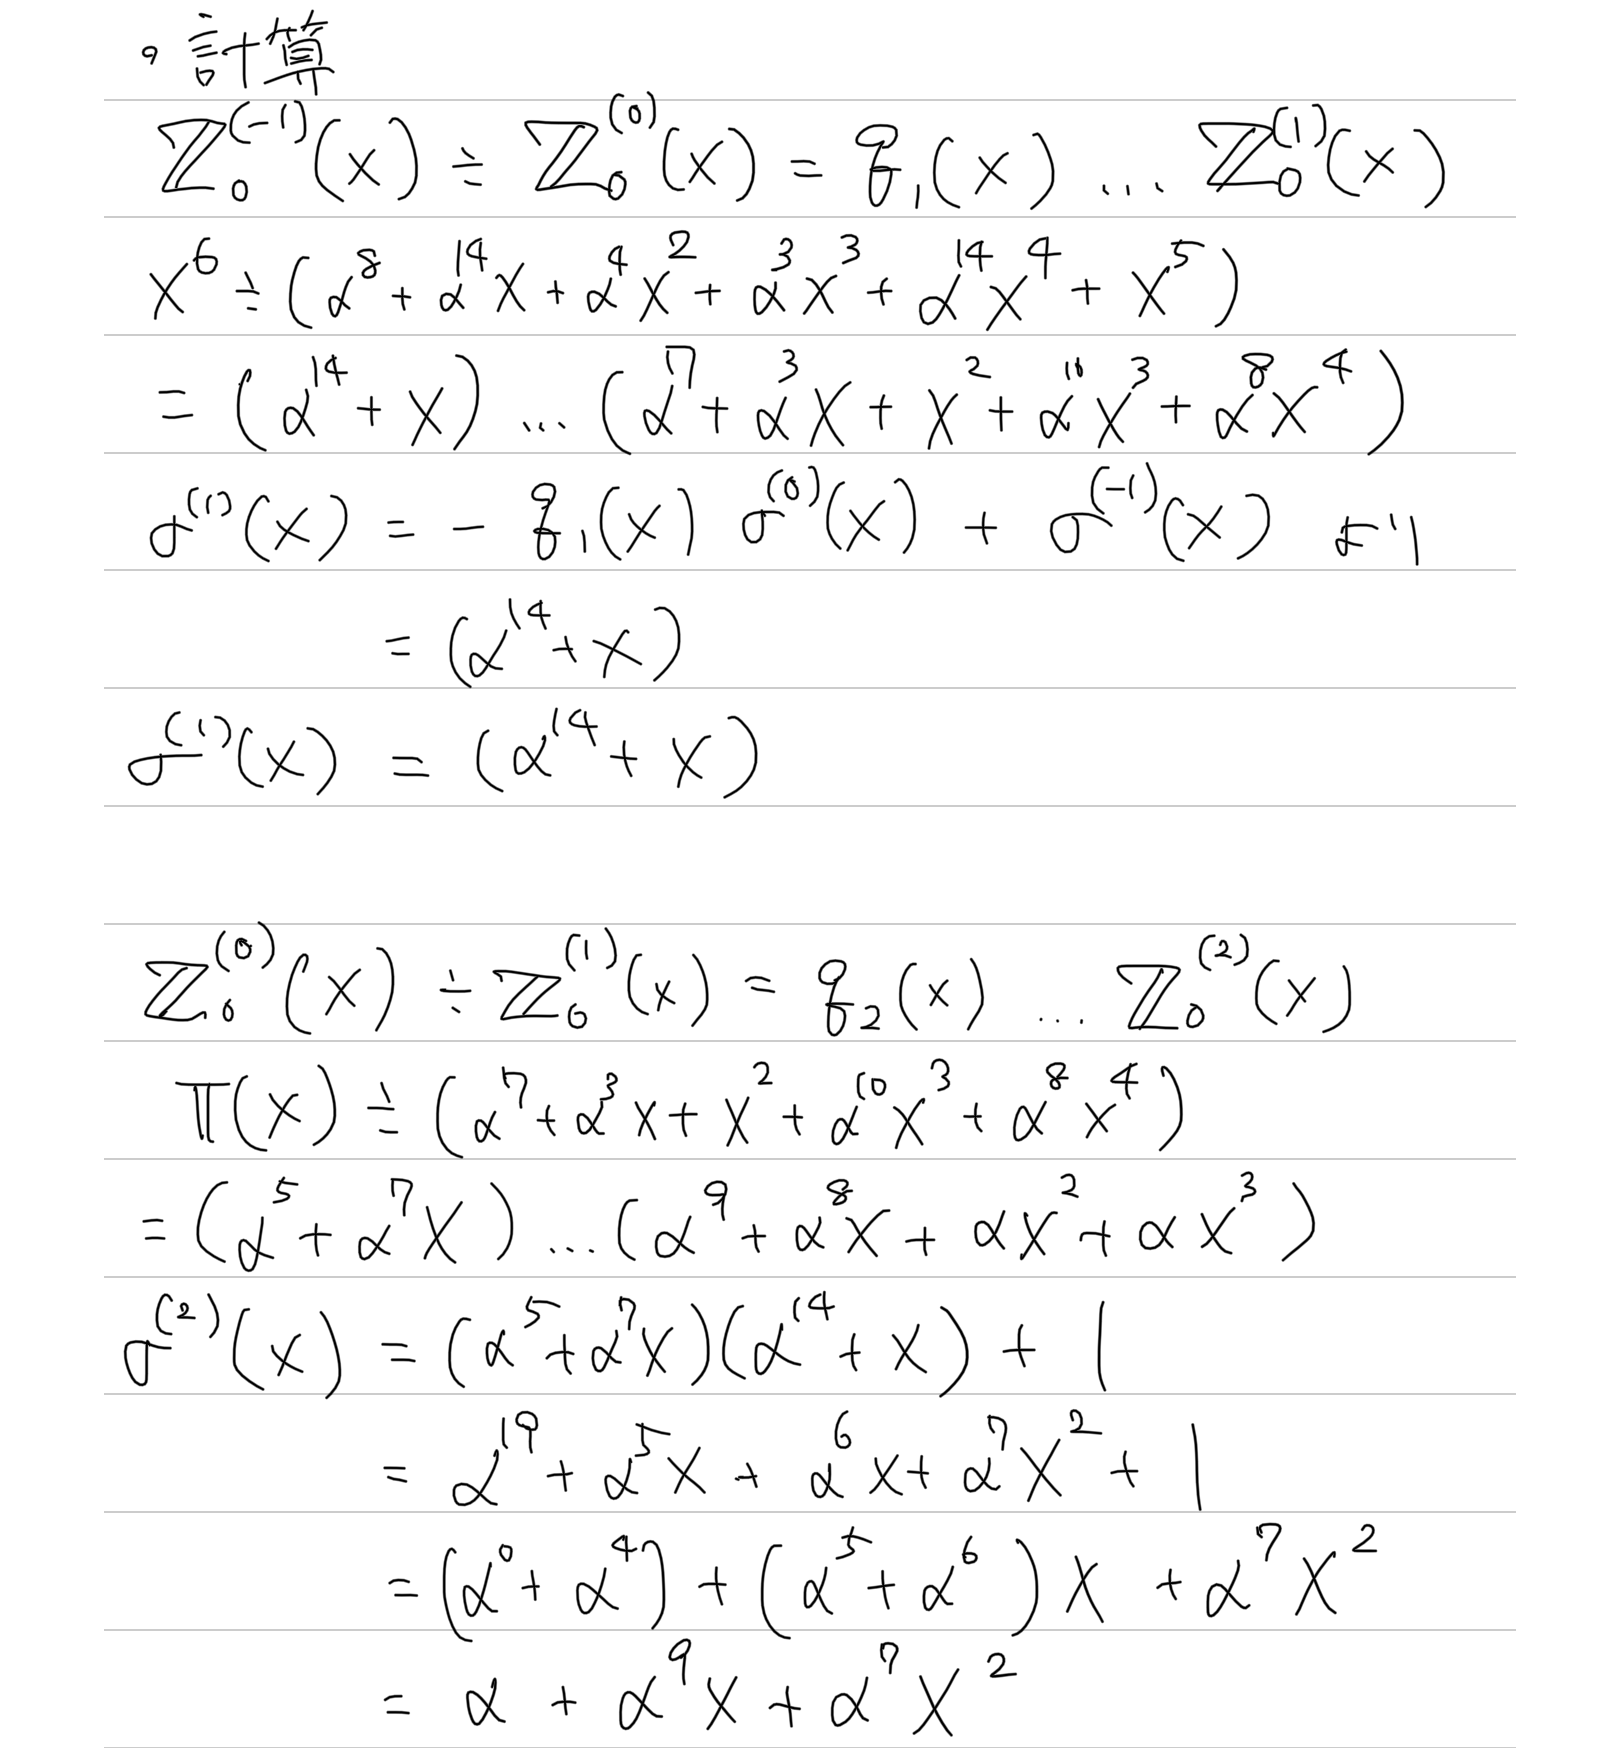 。計算
Z₀⁽⁻¹⁾(x) ÷ Z₀⁽⁰⁾(x) = q₁(x) ... Z₀⁽¹⁾(x)
x⁶ ÷ (α⁸ + α¹⁴x + α⁴x² + α³x³ + α¹⁴x⁴ + x⁵)
= (α¹⁴ + x) ... (α⁷ + α³x + x² + α¹⁰x³ + α⁸x⁴)
σ⁽¹⁾(x) = - q₁(x) σ⁽⁰⁾(x) + σ⁽⁻¹⁾(x) より
= (α¹⁴ + x)
σ⁽¹⁾(x) = (α¹⁴ + x)
Z₀⁽⁰⁾(x) ÷ Z₀⁽¹⁾(x) = q₂(x) ... Z₀⁽²⁾(x)
π(x) ÷ (α⁷ + α³x + x² + α¹⁰x³ + α⁸x⁴)
= (α⁵ + α⁷x) ... (α⁹ + α⁸x + αx² + αx³)
σ⁽²⁾(x) = (α⁵ + α⁷x)(α¹⁴ + x) + 1
= α¹⁹ + α⁵x + α⁶x + α⁷x² + 1
= (α⁰ + α⁴) + (α⁵ + α⁶)x + α⁷x²
= α + α⁹x + α⁷x²